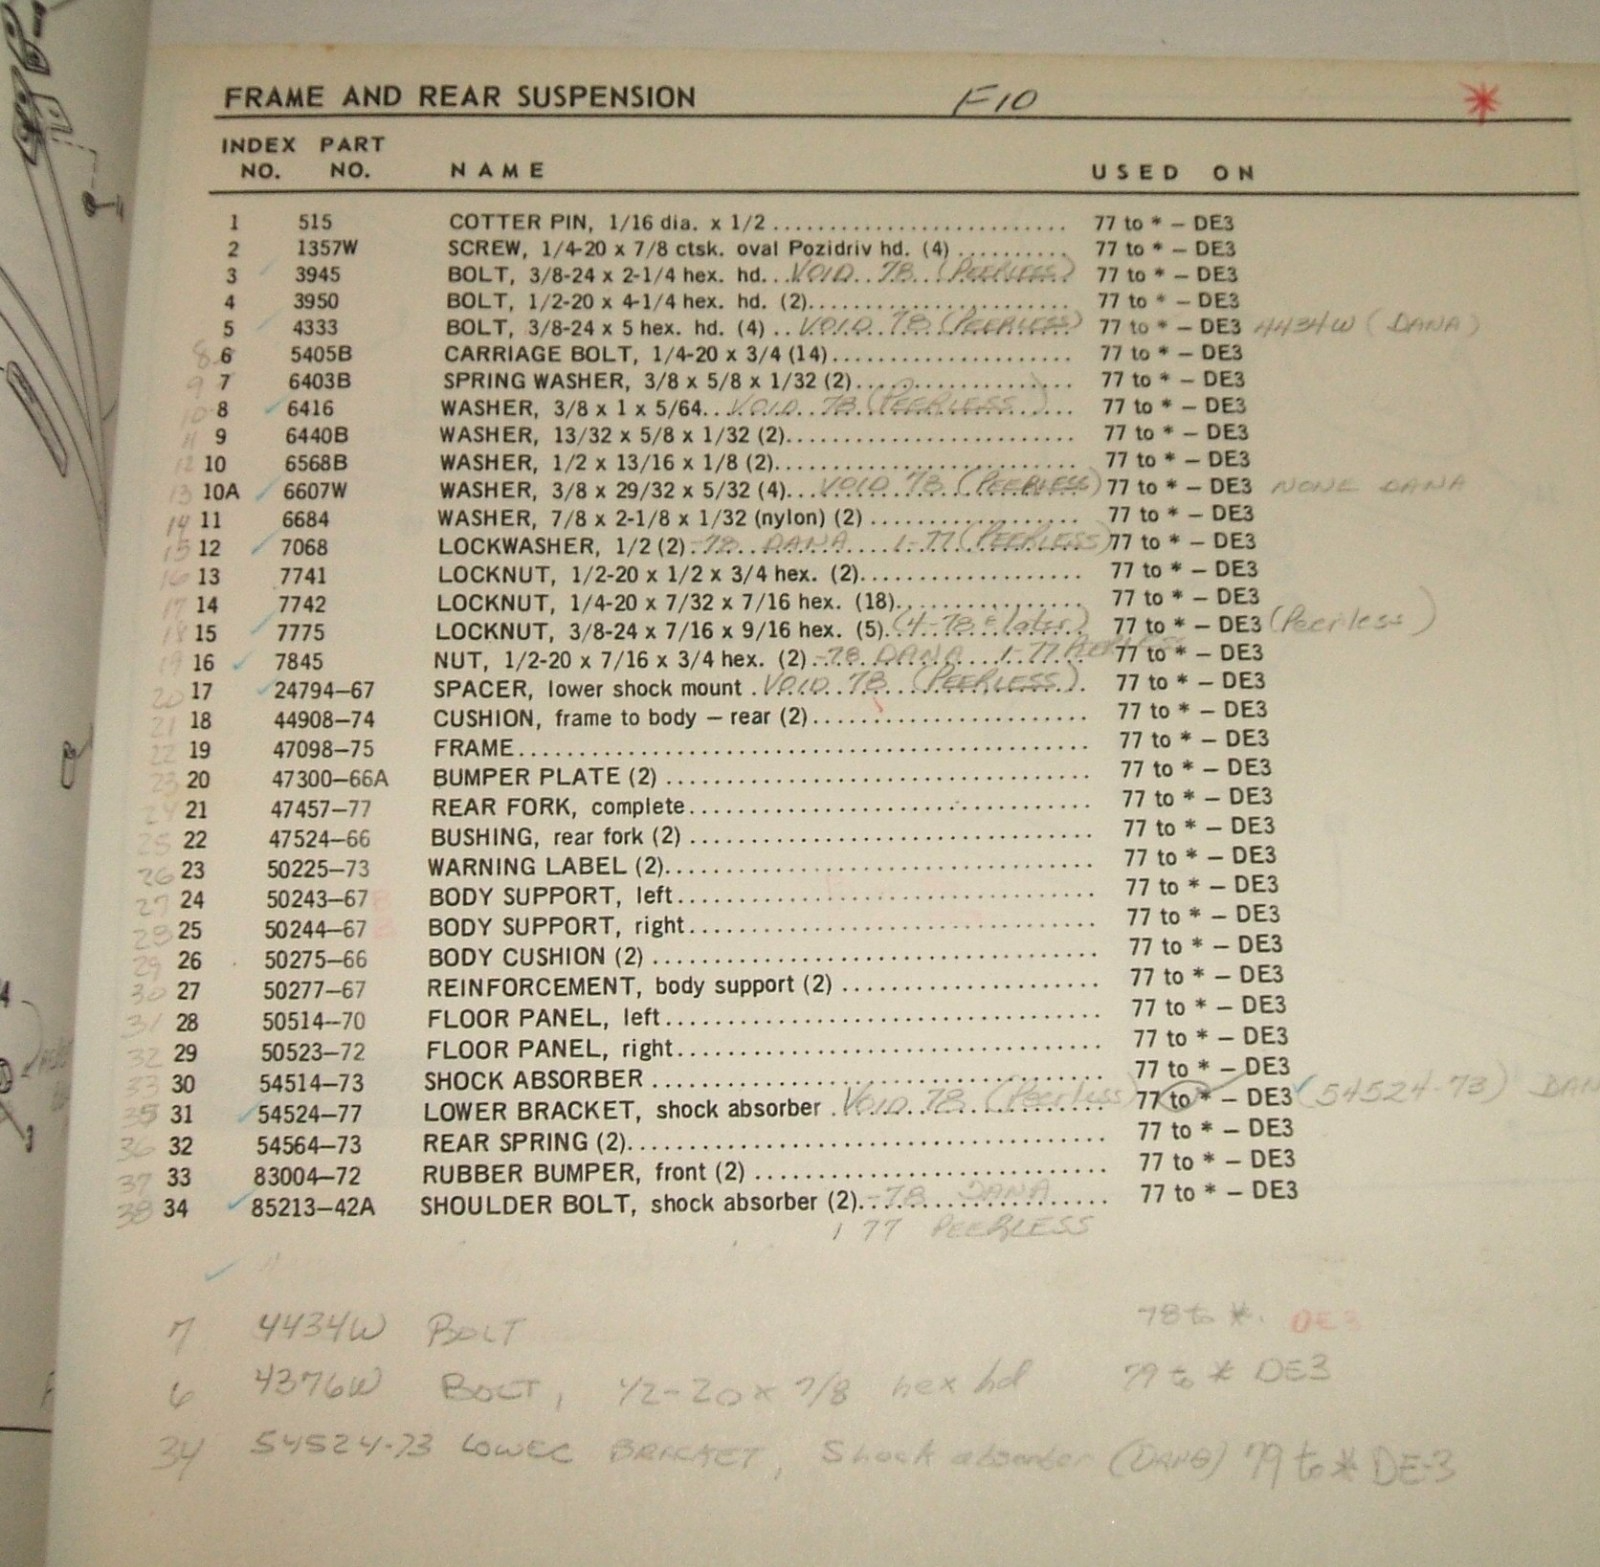 FRAME AND REAR SUSPENSION F10 *
INDEX PART
NO. NO. NAME USED ON
1 515 COTTER PIN, 1/16 dia. x 1/2 77 to * – DE3
2 1357W SCREW, 1/4-20 x 7/8 ctsk. oval Pozidriv hd. (4) 77 to * – DE3
3 3945 BOLT, 3/8-24 x 2-1/4 hex. hd. VOID 78 (PEERLESS) 77 to * – DE3
4 3950 BOLT, 1/2-20 x 4-1/4 hex. hd. (2) 77 to * – DE3
5 4333 BOLT, 3/8-24 x 5 hex. hd. (4) VOID 78 (PEERLESS) 77 to * – DE3 4434W (DANA)
8 6 5405B CARRIAGE BOLT, 1/4-20 x 3/4 (14) 77 to * – DE3
9 7 6403B SPRING WASHER, 3/8 x 5/8 x 1/32 (2) 77 to * – DE3
10 8 6416 WASHER, 3/8 x 1 x 5/64 VOID 78 (PEERLESS) 77 to * – DE3
11 9 6440B WASHER, 13/32 x 5/8 x 1/32 (2) 77 to * – DE3
12 10 6568B WASHER, 1/2 x 13/16 x 1/8 (2) 77 to * – DE3
13 10A 6607W WASHER, 3/8 x 29/32 x 5/32 (4) VOID 78 (PEERLESS) 77 to * – DE3 NONE DANA
14 11 6684 WASHER, 7/8 x 2-1/8 x 1/32 (nylon) (2) 77 to * – DE3
15 12 7068 LOCKWASHER, 1/2 (2) -78 DANA 1-77 (PEERLESS) 77 to * – DE3
16 13 7741 LOCKNUT, 1/2-20 x 1/2 x 3/4 hex. (2) 77 to * – DE3
17 14 7742 LOCKNUT, 1/4-20 x 7/32 x 7/16 hex. (18) 77 to * – DE3
18 15 7775 LOCKNUT, 3/8-24 x 7/16 x 9/16 hex. (5) (4-78 & later) 77 to * – DE3 (Peerless)
19 16 7845 NUT, 1/2-20 x 7/16 x 3/4 hex. (2) -78 DANA 1-77 PEERLESS 77 to * – DE3
20 17 24794–67 SPACER, lower shock mount VOID 78 (PEERLESS) 77 to * – DE3
21 18 44908–74 CUSHION, frame to body – rear (2) 77 to * – DE3
22 19 47098–75 FRAME 77 to * – DE3
23 20 47300–66A BUMPER PLATE (2) 77 to * – DE3
24 21 47457–77 REAR FORK, complete 77 to * – DE3
25 22 47524–66 BUSHING, rear fork (2) 77 to * – DE3
26 23 50225–73 WARNING LABEL (2) 77 to * – DE3
27 24 50243–67 BODY SUPPORT, left 77 to * – DE3
28 25 50244–67 BODY SUPPORT, right 77 to * – DE3
29 26 50275–66 BODY CUSHION (2) 77 to * – DE3
30 27 50277–67 REINFORCEMENT, body support (2) 77 to * – DE3
31 28 50514–70 FLOOR PANEL, left 77 to * – DE3
32 29 50523–72 FLOOR PANEL, right 77 to * – DE3
33 30 54514–73 SHOCK ABSORBER 77 to * – DE3
35 31 54524–77 LOWER BRACKET, shock absorber VOID 78 (Peerless) 77 to * – DE3 (54524-73) DAN
36 32 54564–73 REAR SPRING (2) 77 to * – DE3
37 33 83004–72 RUBBER BUMPER, front (2) 77 to * – DE3
38 34 85213–42A SHOULDER BOLT, shock absorber (2) -78 DANA 77 to * – DE3
1 77 PEERLESS
7 4434W BOLT 78 to *. DE3
6 4376W BOLT, 1/2-20 x 7/8 hex hd 79 to * DE3
34 54524-73 LOWER BRACKET, Shock absorber (DANA) 79 to * DE-3